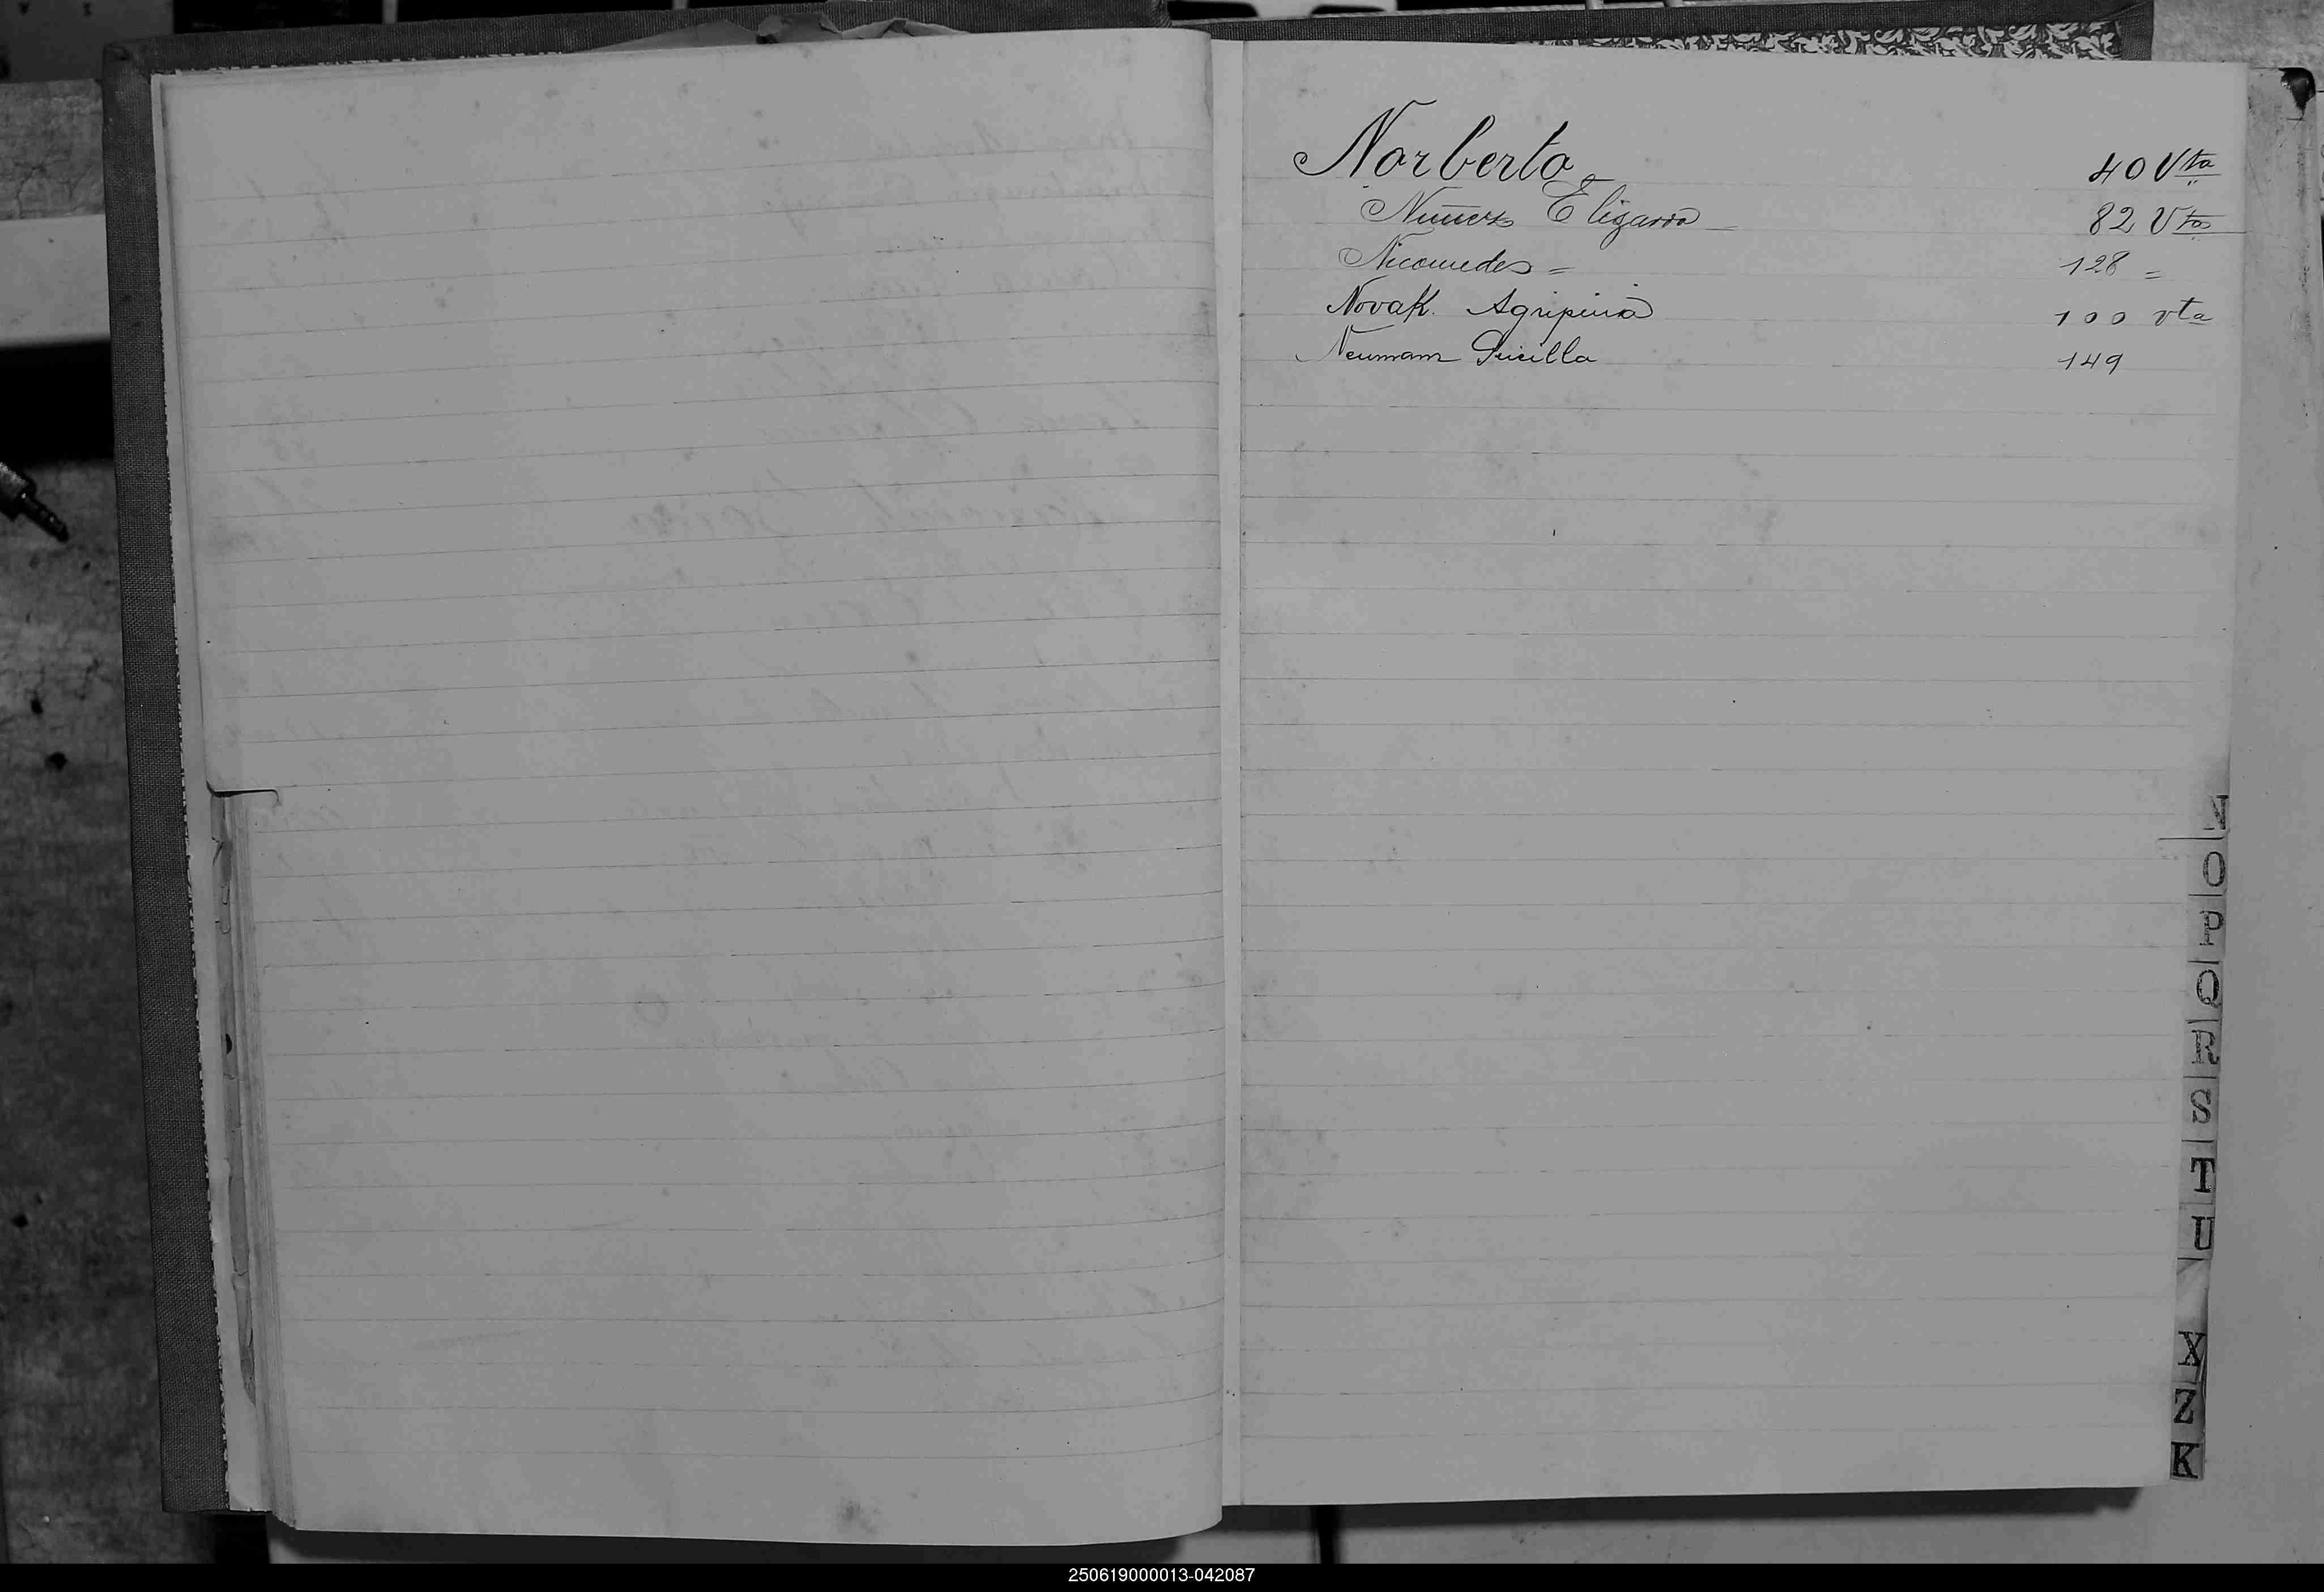 Norberto 40 Vta
Nuñez Elizarda 82 Vta
Nicomedes = 128 =
Novak. Agripina 100 vta
Neumann 149
N
O
P
Q
R
S
T
U
X
Z
K
250619000013-042087